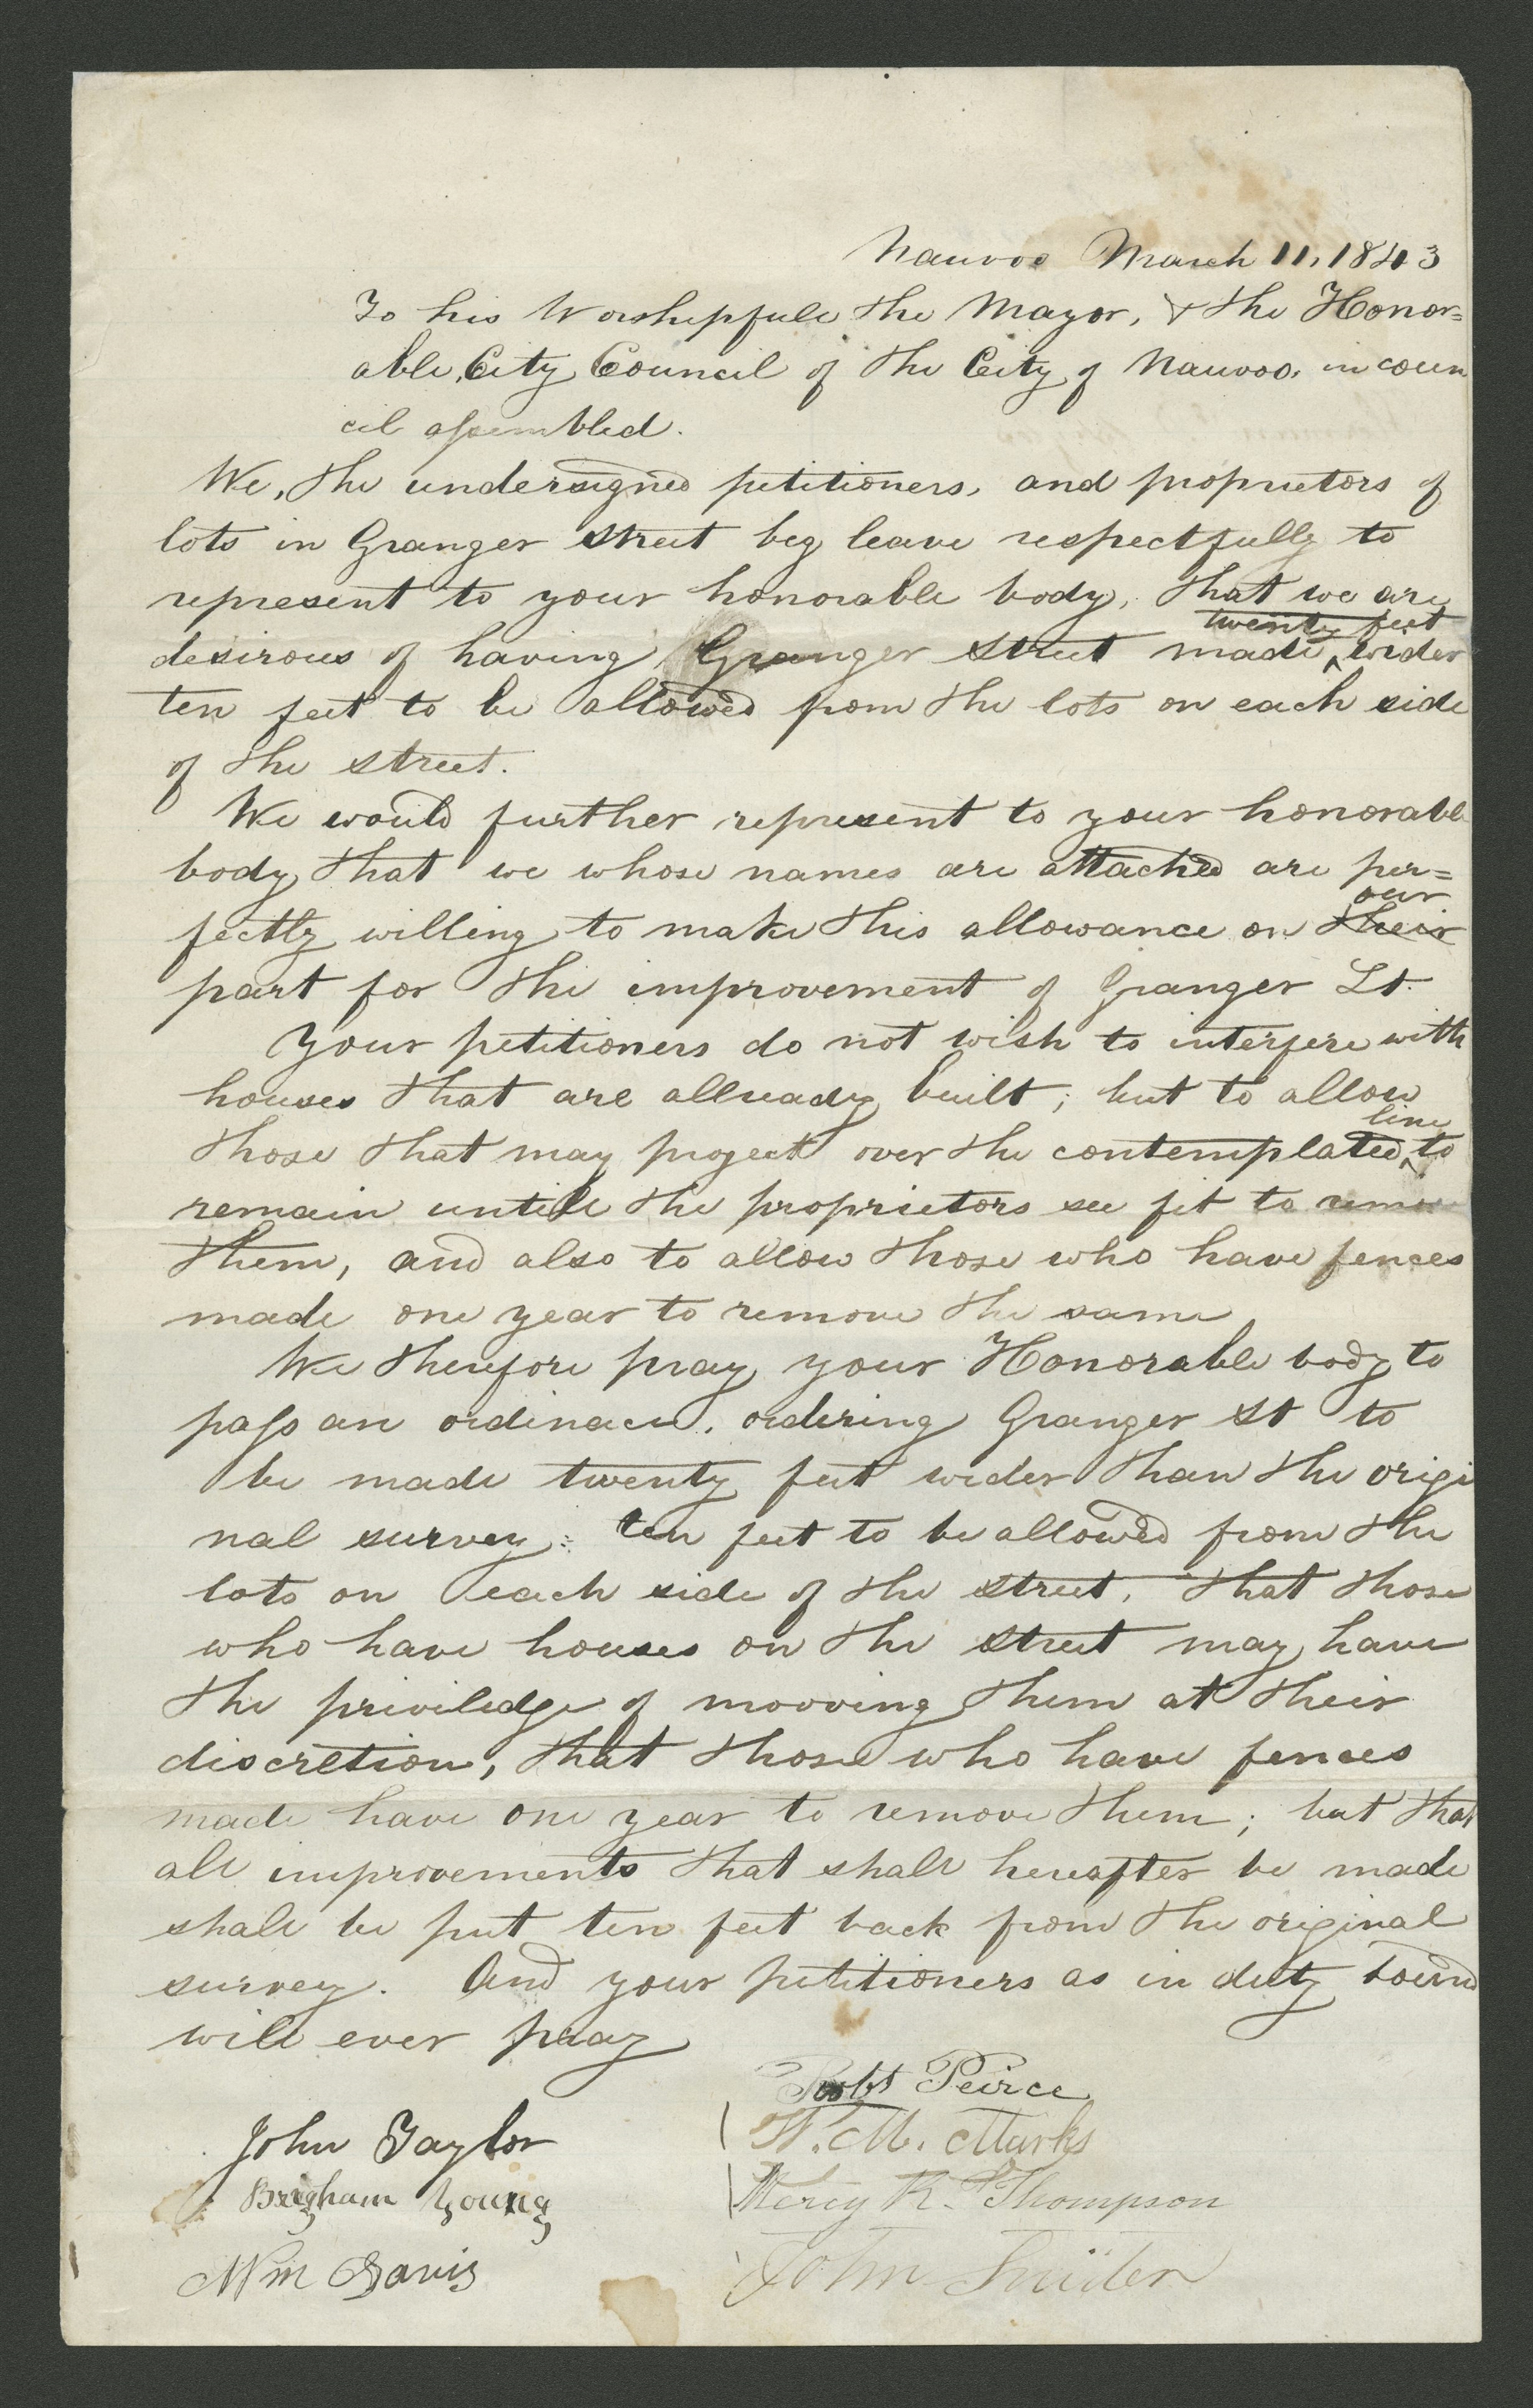 Nauvoo March 11, 1843
To his Worshipfull the Mayor, & the Honor=
able, City Council of the City of Nauvoo, in coun
cil assembled.
We, the undersigned petitioners, and proprietors of
lots in Granger street beg leave respectfully to
represent to your honorable body, that we are
twenty feet
desirous of having Granger street made ^ wider
ten feet to be allowed from the lots on each side
of the street.
We would further represent to your honorable
body that we whose names are attached are per=
our
fectly willing to make this allowance on their
part for the improvement of Granger St.
Your petitioners do not wish to interfere with
houses that are allready built; but to allow
line
those that may project over the contemplated ^ to
remain untill the proprietors see fit to remo
them, and also to allow those who have fences
made one year to remove the same
We therefore pray your Honorable body to
pass an ordinace, ordering Granger St to
be made twenty feet wider than the origi
nal survey: ten feet to be allowed from the
lots on each side of the street, that those
who have houses on the street may have
the priviledge of mooving them at their
discretion, that those who have fences
made have one year to remove them; but that
all improvements that shall hereafter be made
shall be put ten feet back from the original
survey. And your petitioners as in duty bound
will ever pray
Robt Peirce
John Taylor
W. M. Marks
Brigham Young
Mercy R. Thompson
Wm Davis
John Snider